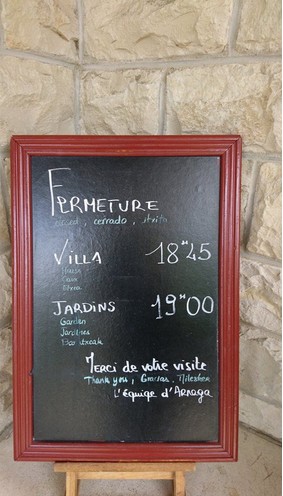 FERMETURE
closed, cerrado, itxita
VILLA 18H45
House
Casa
Etxea
JARDINS 19H00
Garden
Jardines
Baratzeak
Merci de votre visite
Thank you, Gracias, Milesker
L'équipe d'Arnaga